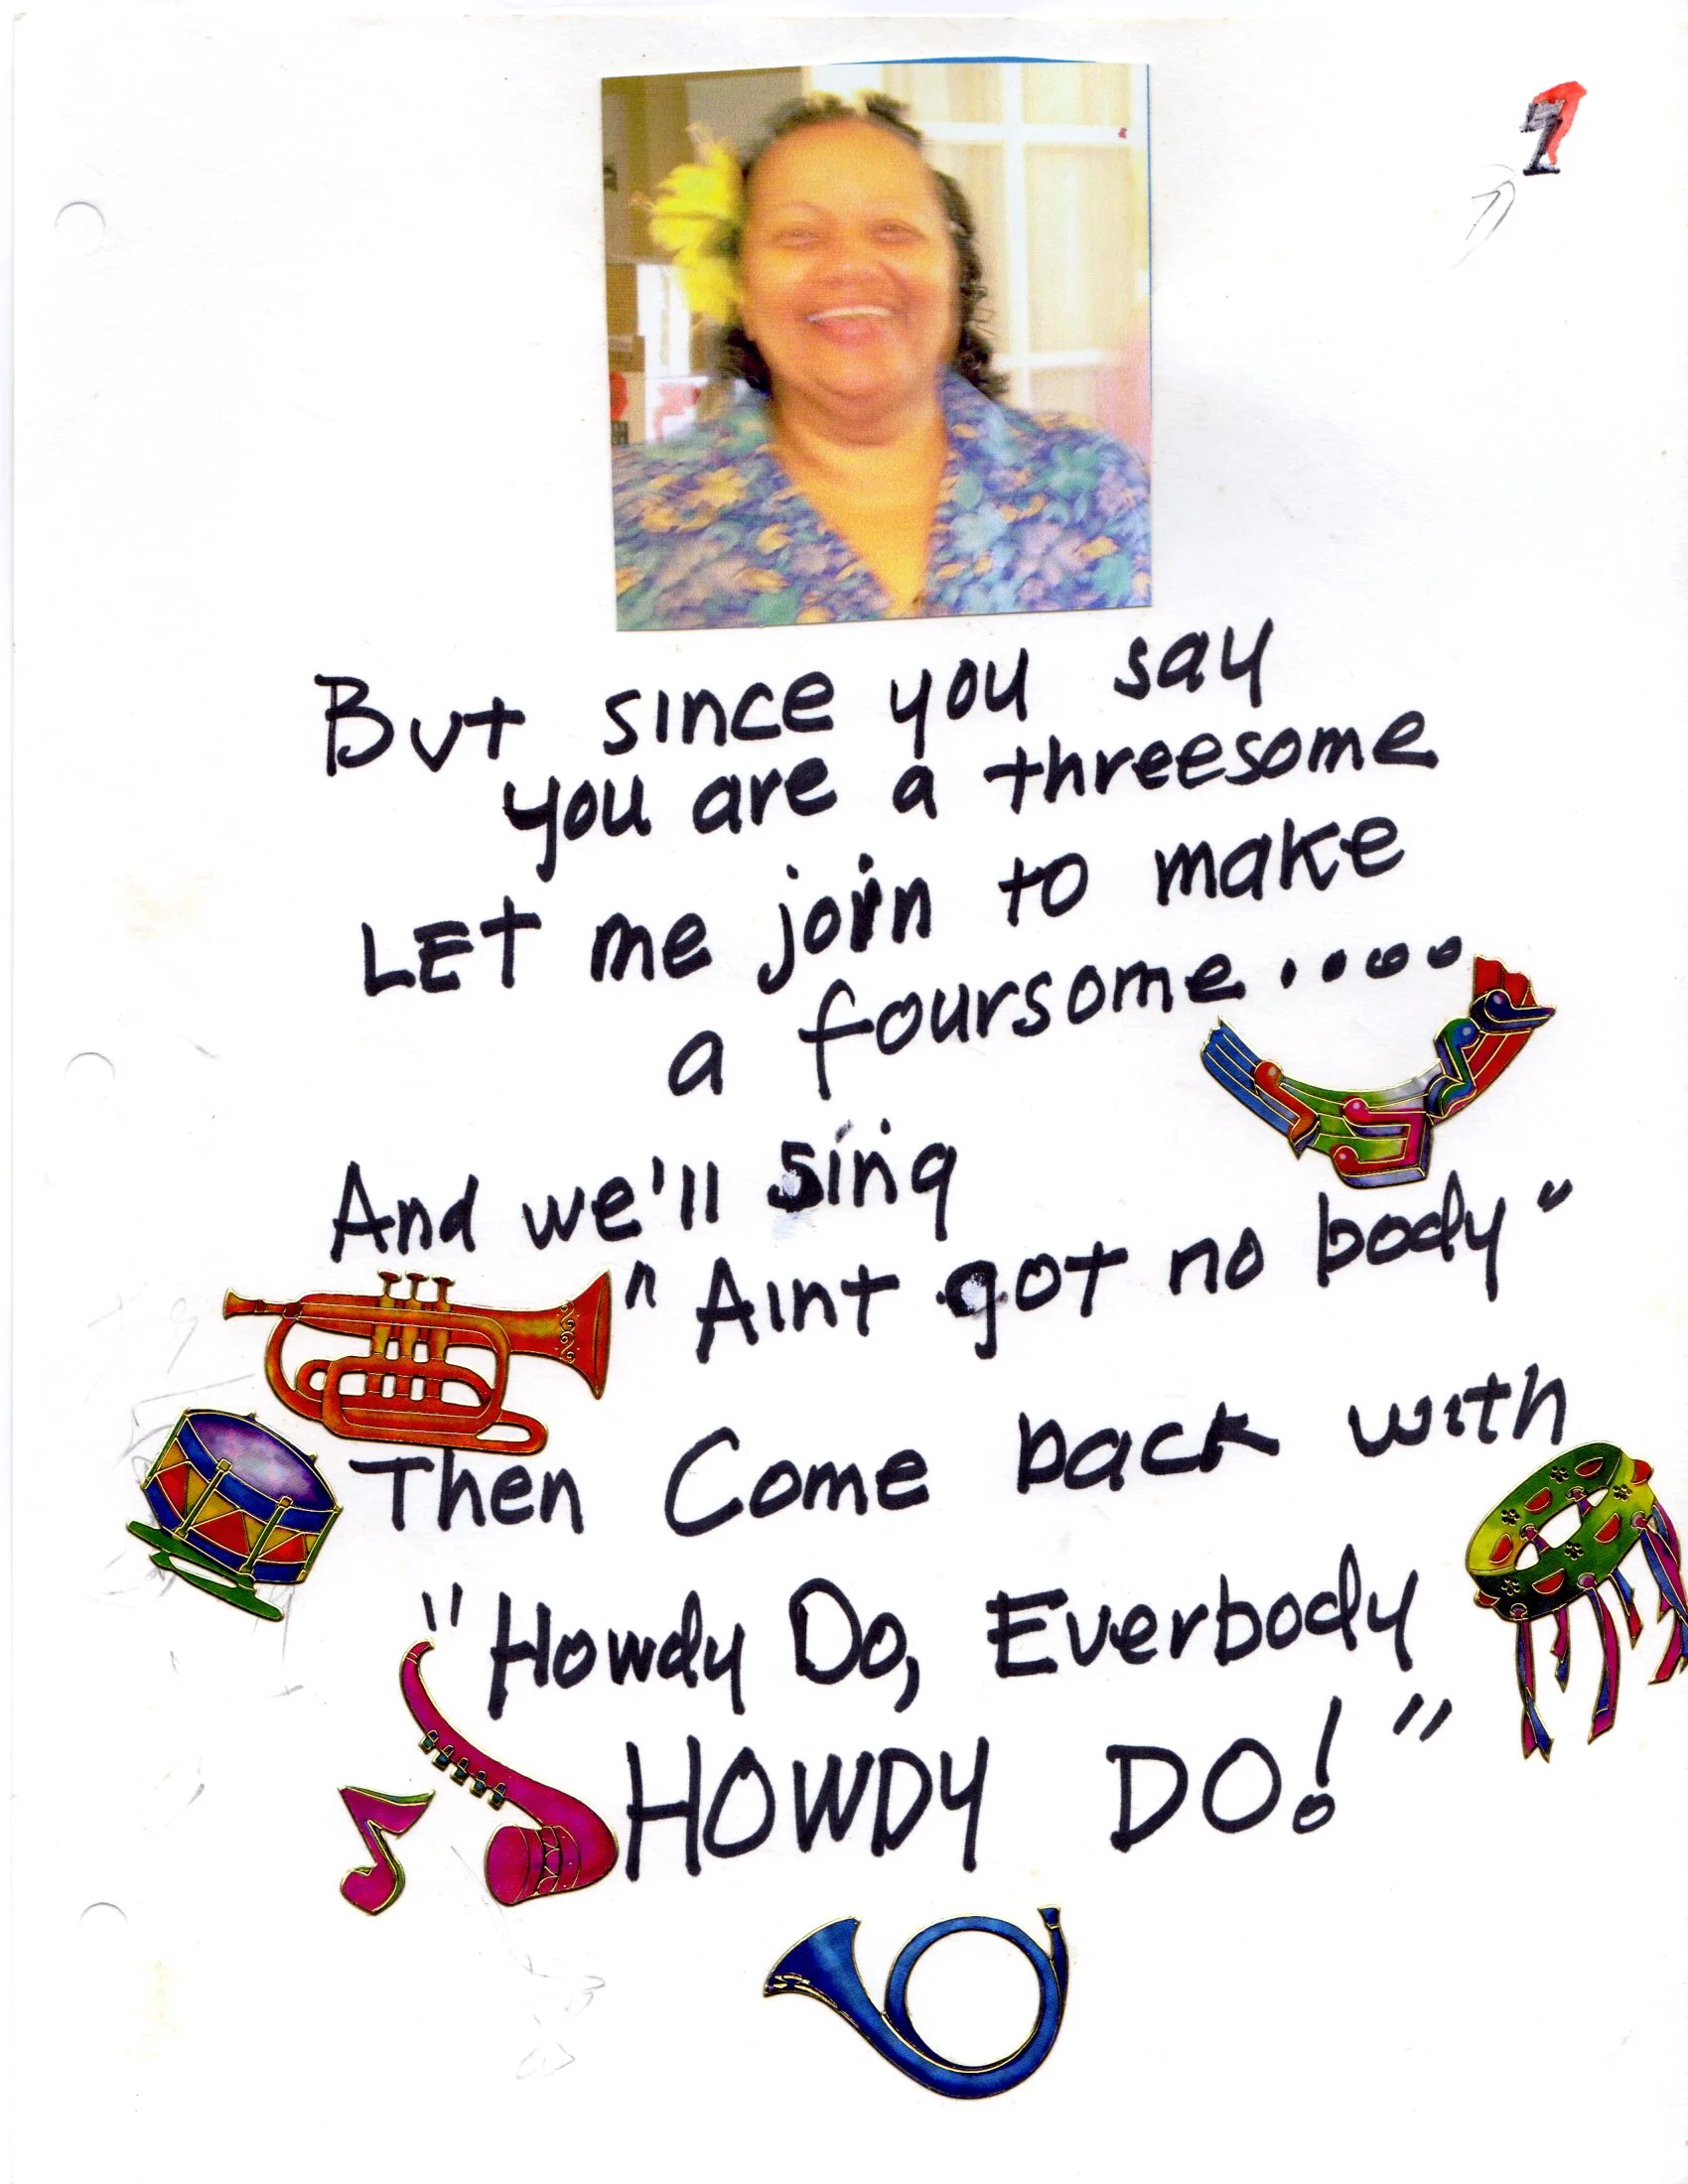 But since you say
you are a threesome
LET me join to make
a foursome.....
And we'll sing
"Aint got no body"
Then Come back with
"Howdy Do, Everbody
HOWDY DO!"